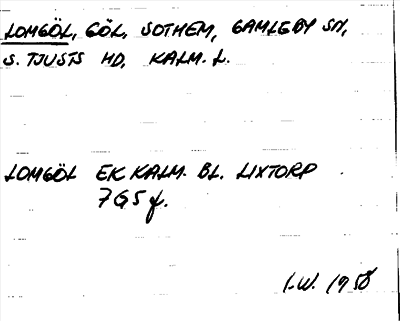 LOMGÖL, GÖL, SOTHEM, GAMLEBY SN,
S. TJUSTS HD, KALM. L.
LOMGÖL EK KALM. BL. LIXTORP
7G5f.
I.W. 1958